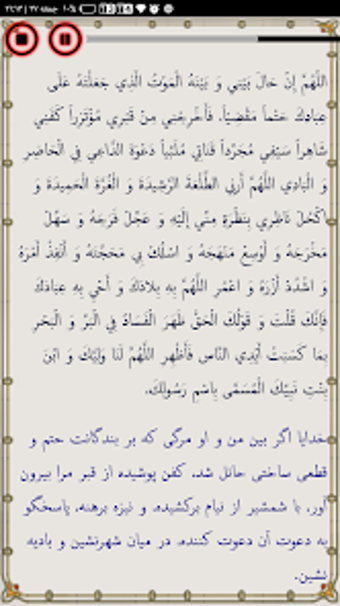 جمعه ۲۷
۱۰٪
اللَّهُمَّ إِنْ حَالَ بَيْنِي وَ بَيْنَهُ الْمَوْتُ الَّذِي جَعَلْتَهُ عَلَى
عِبَادِكَ حَتْماً مَقْضِيّاً، فَأَخْرِجْنِي مِنْ قَبْرِي مُؤْتَزِراً كَفَنِي
شَاهِراً سَيْفِي مُجَرِّداً قَنَاتِي مُلَبِّياً دَعْوَةَ الدَّاعِي فِي الْحَاضِرِ
وَ الْبَادِي اللَّهُمَّ أَرِنِي الطَّلْعَةَ الرَّشِيدَةَ وَ الْغُرَّةَ الْحَمِيدَةَ وَ
اكْحُلْ نَاظِرِي بِنَظْرَةٍ مِنِّي إِلَيْهِ وَ عَجِّلْ فَرَجَهُ وَ سَهِّلْ
مَخْرَجَهُ وَ أَوْسِعْ مَنْهَجَهُ وَ اسْلُكْ بِي مَحَجَّتَهُ وَ أَنْفِذْ أَمْرَهُ
وَ اشْدُدْ أَزْرَهُ وَ اعْمُرِ اللَّهُمَّ بِهِ بِلَادَكَ وَ أَحْيِ بِهِ عِبَادَكَ
فَإِنَّكَ قُلْتَ وَ قَوْلُكَ الْحَقُّ ظَهَرَ الْفَسَادُ فِي الْبَرِّ وَ الْبَحْرِ
بِمَا كَسَبَتْ أَيْدِي النَّاسِ فَأَظْهِرِ اللَّهُمَّ لَنَا وَلِيَّكَ وَ ابْنَ
بِنْتِ نَبِيِّكَ الْمُسَمَّى بِاسْمِ رَسُولِكَ.
خدایا اگر بین من و او مرگی که بر بندگانت حتم و
قطعی ساختی حائل شد، کفن پوشیده از قبر مرا بیرون
آور، با شمشیر از نیام برکشیده، و نیزه برهنه، پاسخگو
به دعوت آن دعوت کننده، در میان شهرنشین و بادیه
نشین.